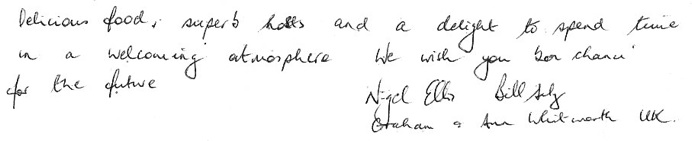 Delicious food, superb hosts and a delight to spend time
in a welcoming atmosphere We wish you bon chance
for the future
Nigel Ellis Bill
Graham & Ann Whitworth UK.